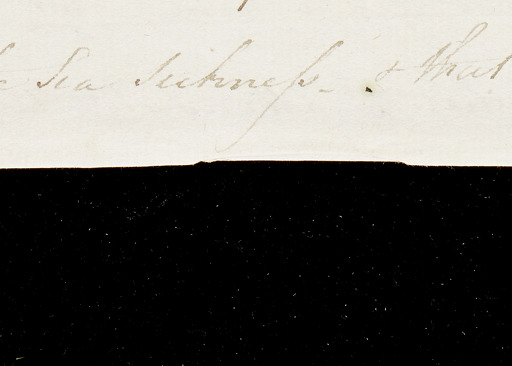 Sea Sickness - & that